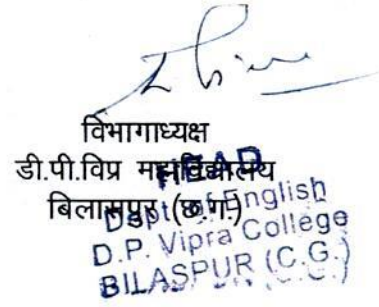 विभागाध्यक्ष
डी.पी.विप्र महाविद्यालय
बिलासपुर (छ.ग.)
HEAD
Dept. of English
D.P. Vipra College
BILASPUR (C.G.)